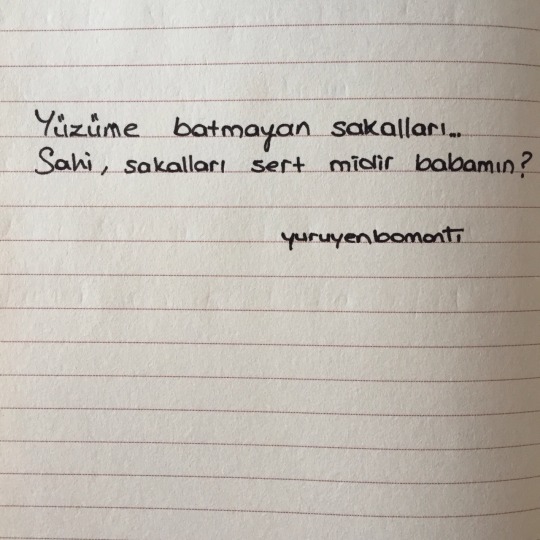 Yüzüme batmayan sakalları..
Sahi, sakalları sert midir babamın?
yuruyenbomonti